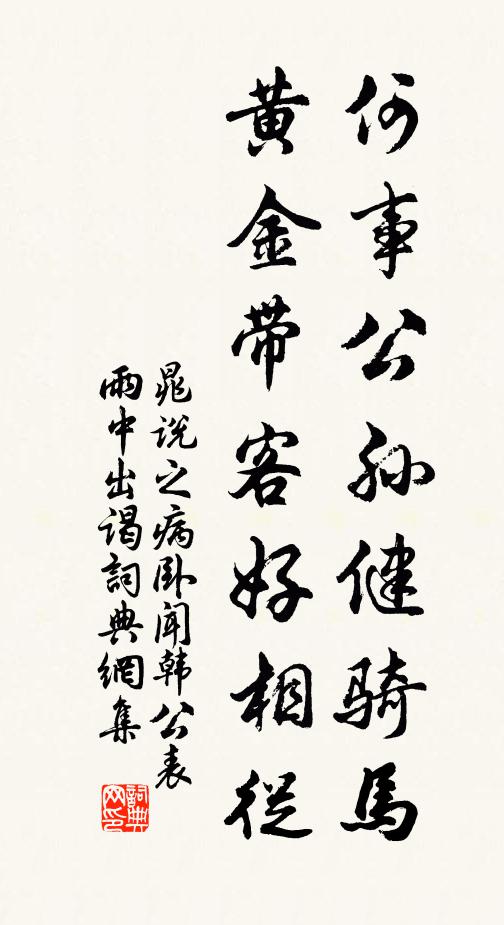 何事公孙健骑馬
黄金带客好相從
晁说之病卧闻韩公表
雨中出謁詞典網集
詞典
网印